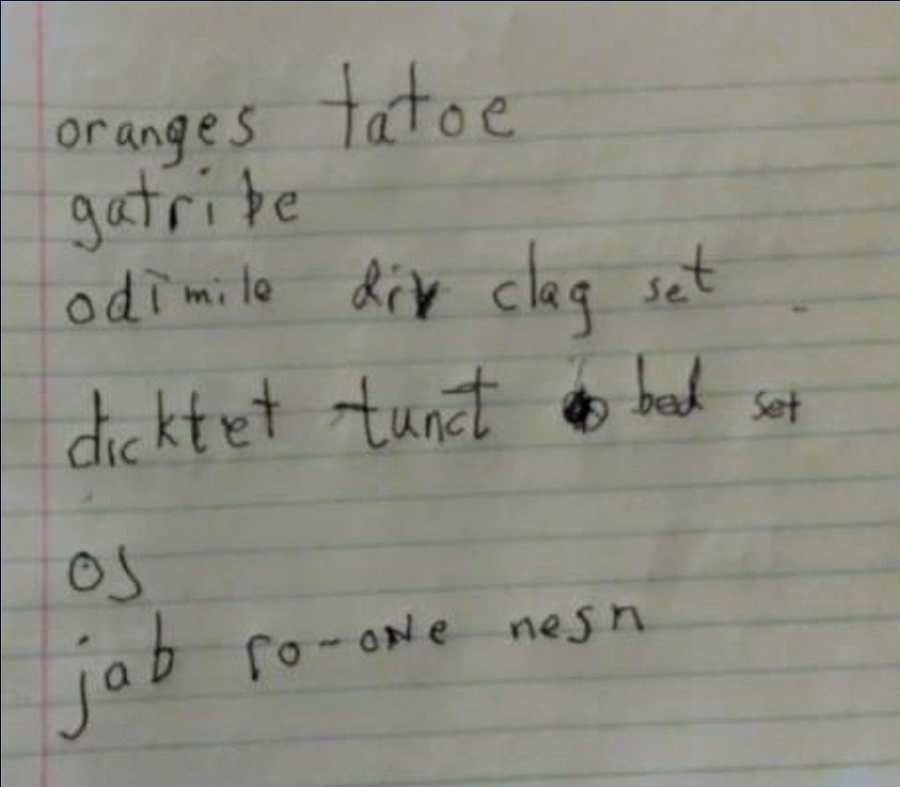 oranges tatoe
gatribe
odimile div clag set
dicktet tunct bed set
os
jab ro-one nesn